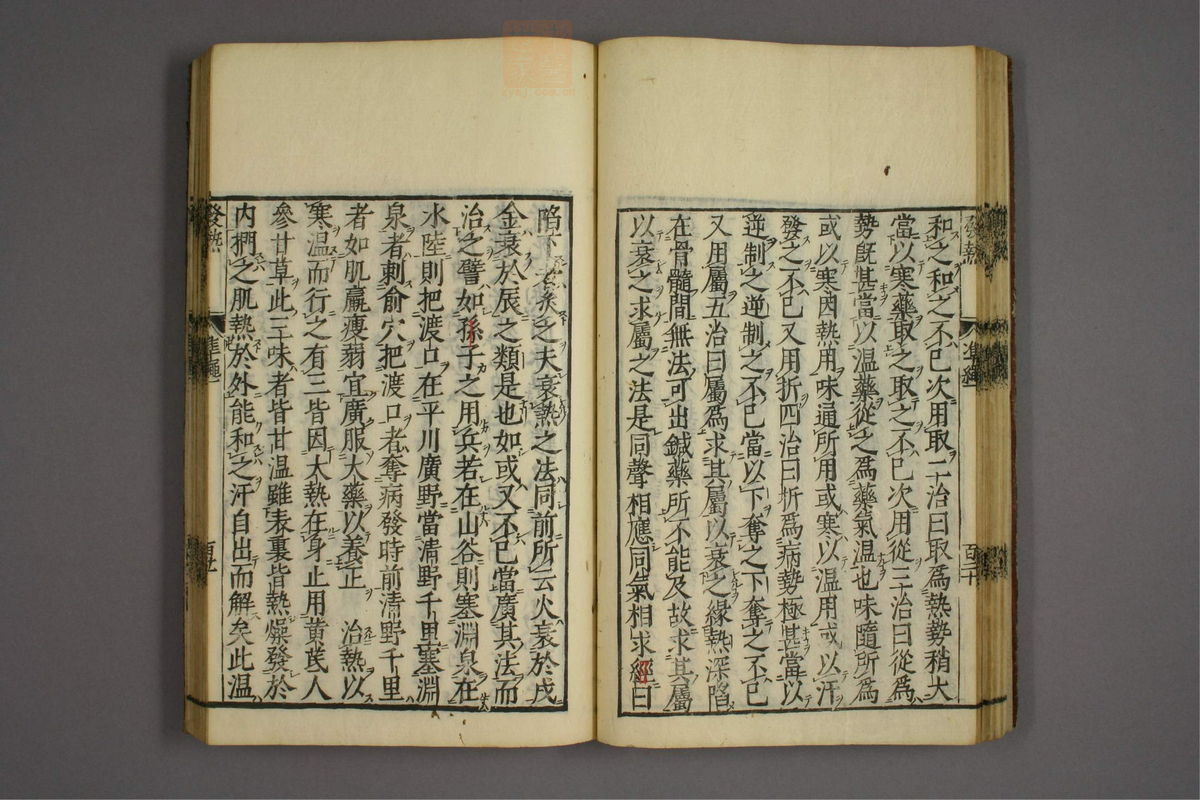 和之和之不已次用取二治曰取爲熱勢稍大
當以寒藥取之取之不已次用從三治曰從爲
勢旣甚當以温藥從之爲藥氣温也味隨所爲
或以寒因熱用味通所用或寒以温用或以汗
發之不已又用折四治曰折爲病勢極甚當以
逆制之逆制之不已當以下奪之下奪之不已
又用屬五治曰屬爲求其屬以衰之緣熱深陷
在骨髓間無法可出鍼藥所不能及故求其屬
以衰之求屬之法是同聲相應同氣相求經曰
陷下者灸之夫衰熱之法同前所云火衰於戌
金衰於辰之類是也如或又不已當廣其法而
治之譬如孫子之用兵若在山谷則塞淵泉在
水陸則把渡口在平川廣野當清野千里塞淵
泉者刺俞穴把渡口者奪病發時前清野千里
者如肌羸瘦弱宜廣服大藥以養正 治熱以
寒温而行之有三皆因大熱在身止用黄芪人
參甘草此三味者皆甘温雖表裏皆熱燥發於
内捫之肌熱於外能和之汗自出而解矣此温
發熱 準繩